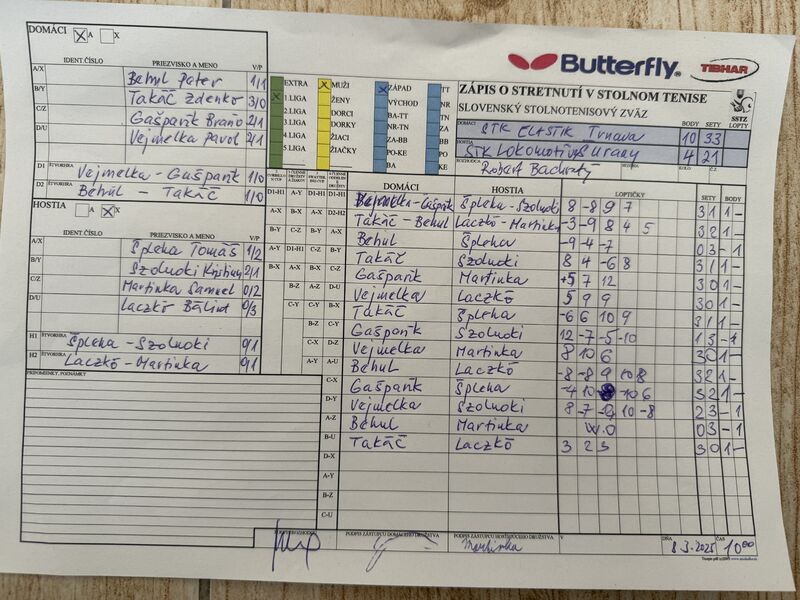 DOMÁCI X A X
Butterfly® TIBHAR
ZÁPIS O STRETNUTÍ V STOLNOM TENISE
SLOVENSKÝ STOLNOTENISOVÝ ZVÄZ
SSTZ
IDENT.ČÍSLO PRIEZVISKO A MENO V/P
A/X Behul Peter 1/1
B/Y Takáč Zdenko 3/0
C/Z Gašparík Braňo 2/1
D/U Vejmelka Pavol 2/1
D1 ŠTVORHRA Vejmelka - Gašparík 1/0
D2 ŠTVORHRA Behúl - Takáč 1/0
EXTRA
1.LIGA
2.LIGA
3.LIGA
4.LIGA
5.LIGA
MUŽI
ŽENY
DORCI
DORKY
ŽIACI
ŽIAČKY
ZÁPAD
VÝCHOD
BA-TT
NR-TN
ZA-BB
PO-KE
BA
TT
NR
TN
ZA
BB
PO
KE
DOMÁCI STK ELASTIK Trnava BODY 10 SETY 33 LOPTY
HOSTIA STK Lokomotíva Vrany 4 21
ROZHODCA Robert Bachratý KOLO Č.Z.
HOSTIA A X X
IDENT.ČÍSLO PRIEZVISKO A MENO V/P
A/X Špleha Tomáš 1/2
B/Y Szolnoki Kristian 2/1
C/Z Martinka Samuel 0/2
D/U Laczkó Bálint 0/3
H1 ŠTVORHRA Špleha - Szolnoki 0/1
H2 ŠTVORHRA Laczkó - Martinka 0/1
PRIPOMIENKY, POZNÁMKY
DOMÁCI HOSTIA LOPTIČKY SETY BODY
Vejmelka - Gašparík Špleha - Szolnoki 8 -8 9 7 3 1 1 -
Takáč - Behul Laczkó - Martinka -3 -9 8 4 5 3 2 1 -
Behul Špleha -9 -4 -7 0 3 - 1
Takáč Szolnoki 8 4 -6 8 3 1 1 -
Gašparík Martinka +5 7 12 3 0 1 -
Vejmelka Laczkó 5 9 9 3 0 1 -
Takáč Špleha -6 6 10 9 3 1 1 -
Gašparík Szolnoki 12 -7 -5 -10 1 3 - 1
Vejmelka Martinka 8 10 6 3 0 1 -
Behul Laczkó -8 -8 9 10 8 3 2 1 -
Gašparík Špleha -4 10 -10 6 3 2 1 -
Vejmelka Szolnoki 8 7 10 -8 2 3 - 1
Behul Martinka W.O 0 3 - 1
Takáč Laczkó 3 2 3 3 0 1 -
PODPIS ROZHODCU
PODPIS ZÁSTUPCU DOMÁCEHO DRUŽSTVA
PODPIS ZÁSTUPCU HOSŤUJÚCEHO DRUŽSTVA
Martinka
V DŇA 8.3.2025 ČAS 10:00